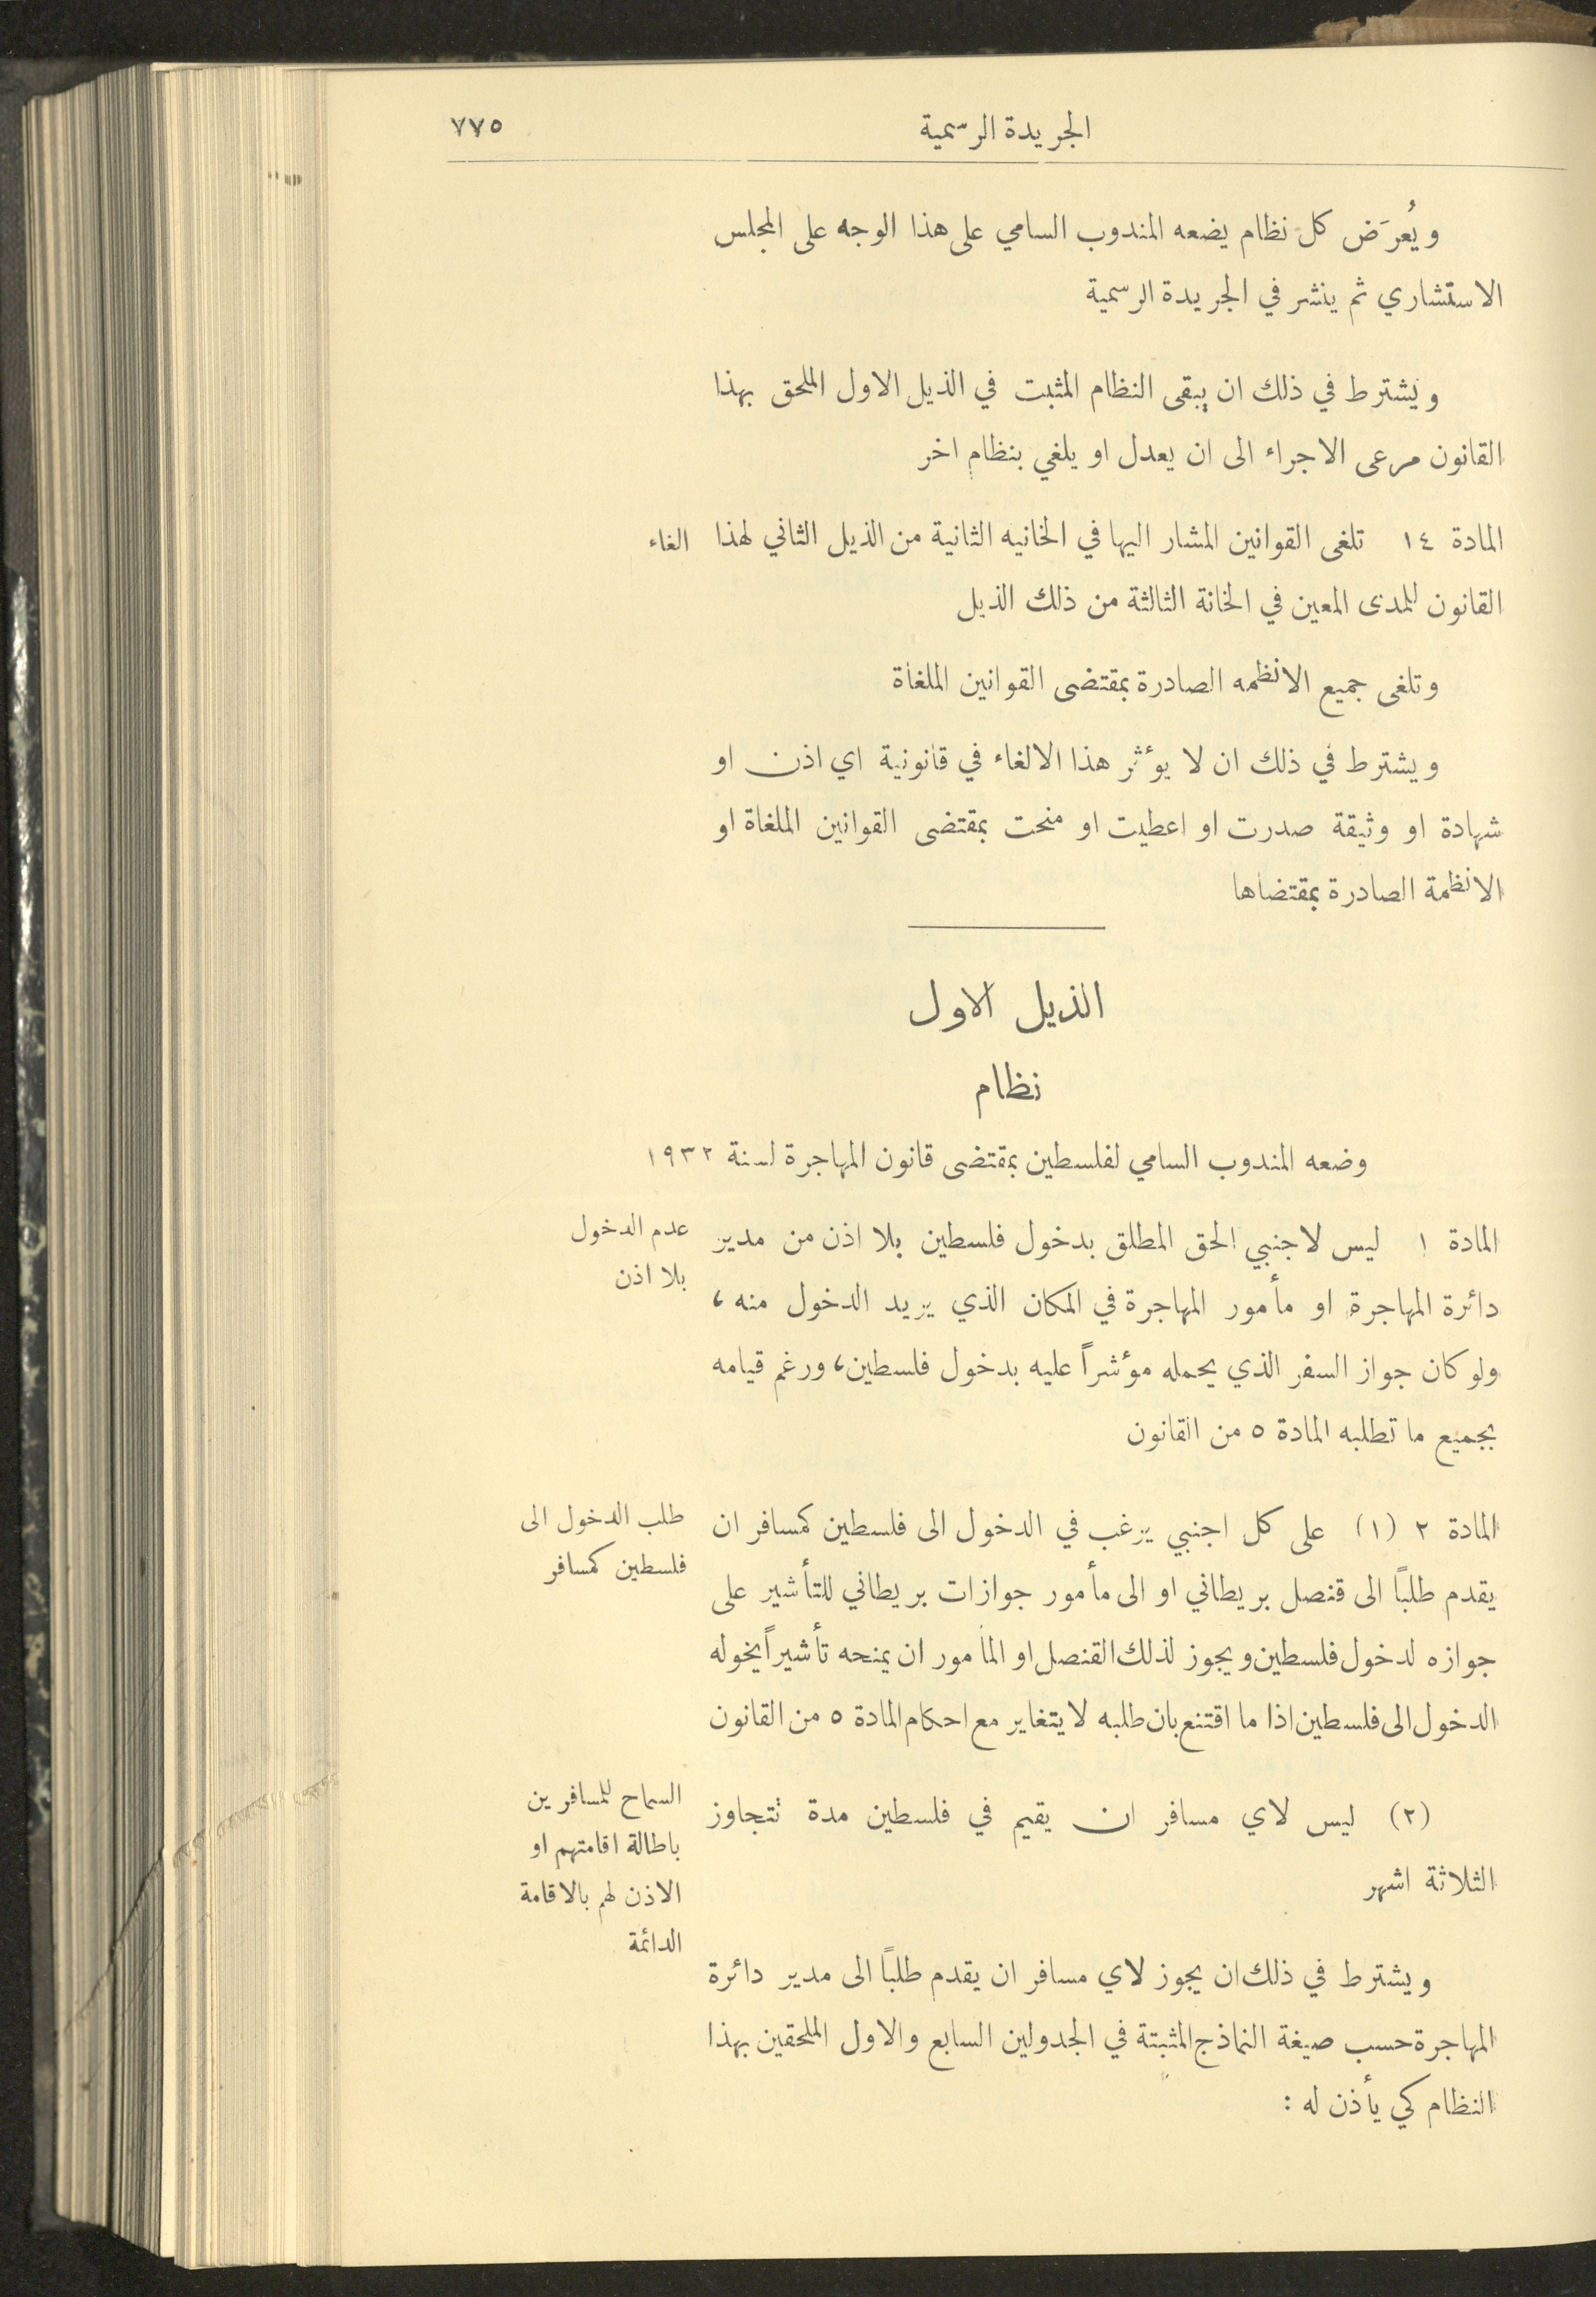 الجريدة الرسمية
٧٧٥
ويُعرَض كل نظام يضعه المندوب السامي على هذا الوجه على المجلس
الاستشاري ثم ينشر في الجريدة الرسمية
ويشترط في ذلك ان يبقى النظام المثبت في الذيل الاول الملحق بهذا
القانون مرعى الاجراء الى ان يعدل او يلغي بنظام اخر
المادة ١٤ تلغى القوانين المشار اليها في الخانيه الثانية من الذيل الثاني لهذا
الغاء
القانون للمدى المعين في الخانة الثالثة من ذلك الذيل
وتلغى جميع الانظمه الصادرة بمقتضى القوانين الملغاة
ويشترط في ذلك ان لا يوٴثر هذا الالغاء في قانونية اي اذن او
شهادة او وثيقة صدرت او اعطيت او منحت بمقتضى القوانين الملغاة او
الانظمة الصادرة بمقتضاها
الذيل الاول
نظام
وضعه المندوب السامي لفلسطين بمقتضى قانون المهاجرة لسنة ١٩٣٢
المادة ١ ليس لاجنبي الحق المطلق بدخول فلسطين بلا اذن من مدير
عدم الدخول
بلا اذن
دائرة المهاجرة او مأمور المهاجرة في المكان الذي يريد الدخول منه ،
ولو كان جواز السفر الذي يحمله موٴشراً عليه بدخول فلسطين، ورغم قيامه
بجميع ما تطلبه المادة ٥ من القانون
المادة ٢ (١) على كل اجنبي يرغب في الدخول الى فلسطين كمسافر ان
طلب الدخول الى
فلسطين كمسافر
يقدم طلبًا الى قنصل بريطاني او الى مأمور جوازات بريطاني للتأشير على
جوازه لدخول فلسطين ويجوز لذلك القنصل او المأمور ان يمنحه تأشيراً يخوله
الدخول الى فلسطين اذا ما اقتنع بان طلبه لا يتغاير مع احكام المادة ٥ من القانون
(٢) ليس لاي مسافر ان يقيم في فلسطين مدة تتجاوز
الثلاثة اشهر
السماح للمسافرين
باطالة اقامتهم او
الاذن لهم بالاقامة
الدائمة
ويشترط في ذلك ان يجوز لاي مسافر ان يقدم طلبًا الى مدير دائرة
المهاجرة حسب صيغة النماذج المثبتة في الجدولين السابع والاول الملحقين بهذا
النظام كي يأذن له :